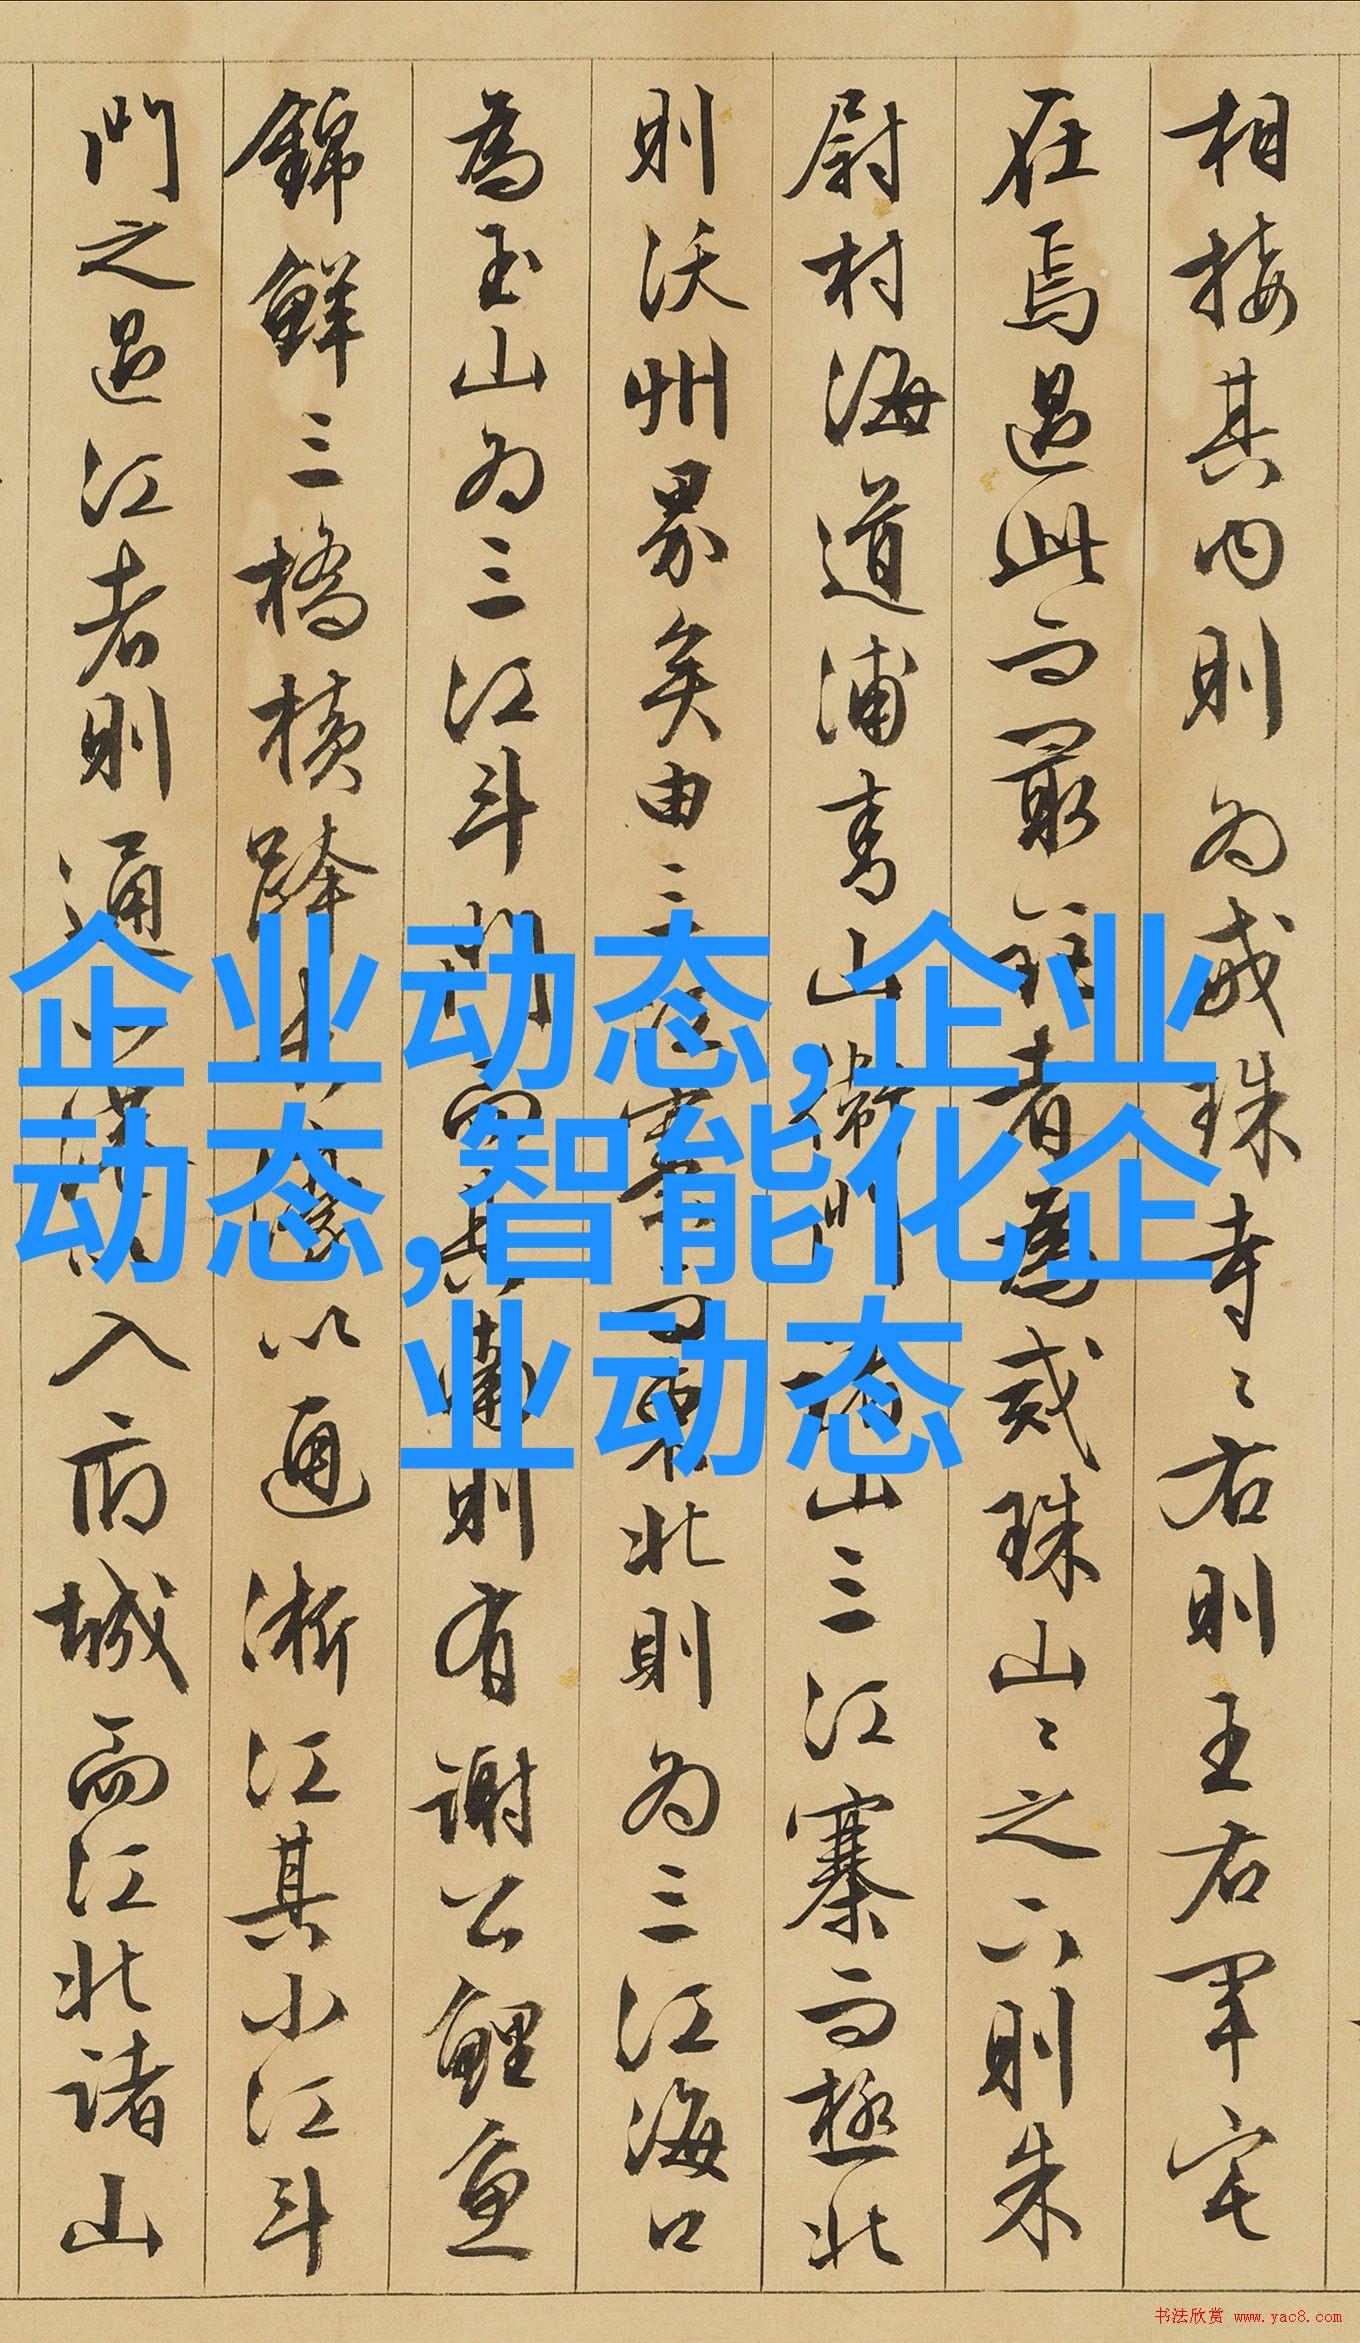 相接其内則为戒珠寺〻右則王右軍宅
在焉過此而最 者為戒珠山〻之 則朱
尉村海道浦 山 山三江寨而極北
則沃州界矣由三江 東北則为三江海口
為玉山为三江斗門 其南則有謝公鯉魚
錦鮮三橋横跨 以通浙江其小江斗
門之過江者則通 入府城而江北諸山
企业动态,企业
动态,智能化企
业动态
书法欣赏 www.yac8.com